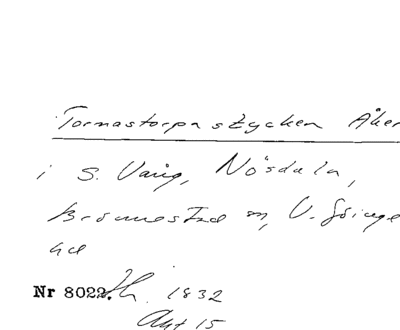 Tormastorpa stycken Åker
i S. Vång, Nösdala,
Brönnestad sn, V. Göinge
hd
Nr 8022. 1832
Akt 15